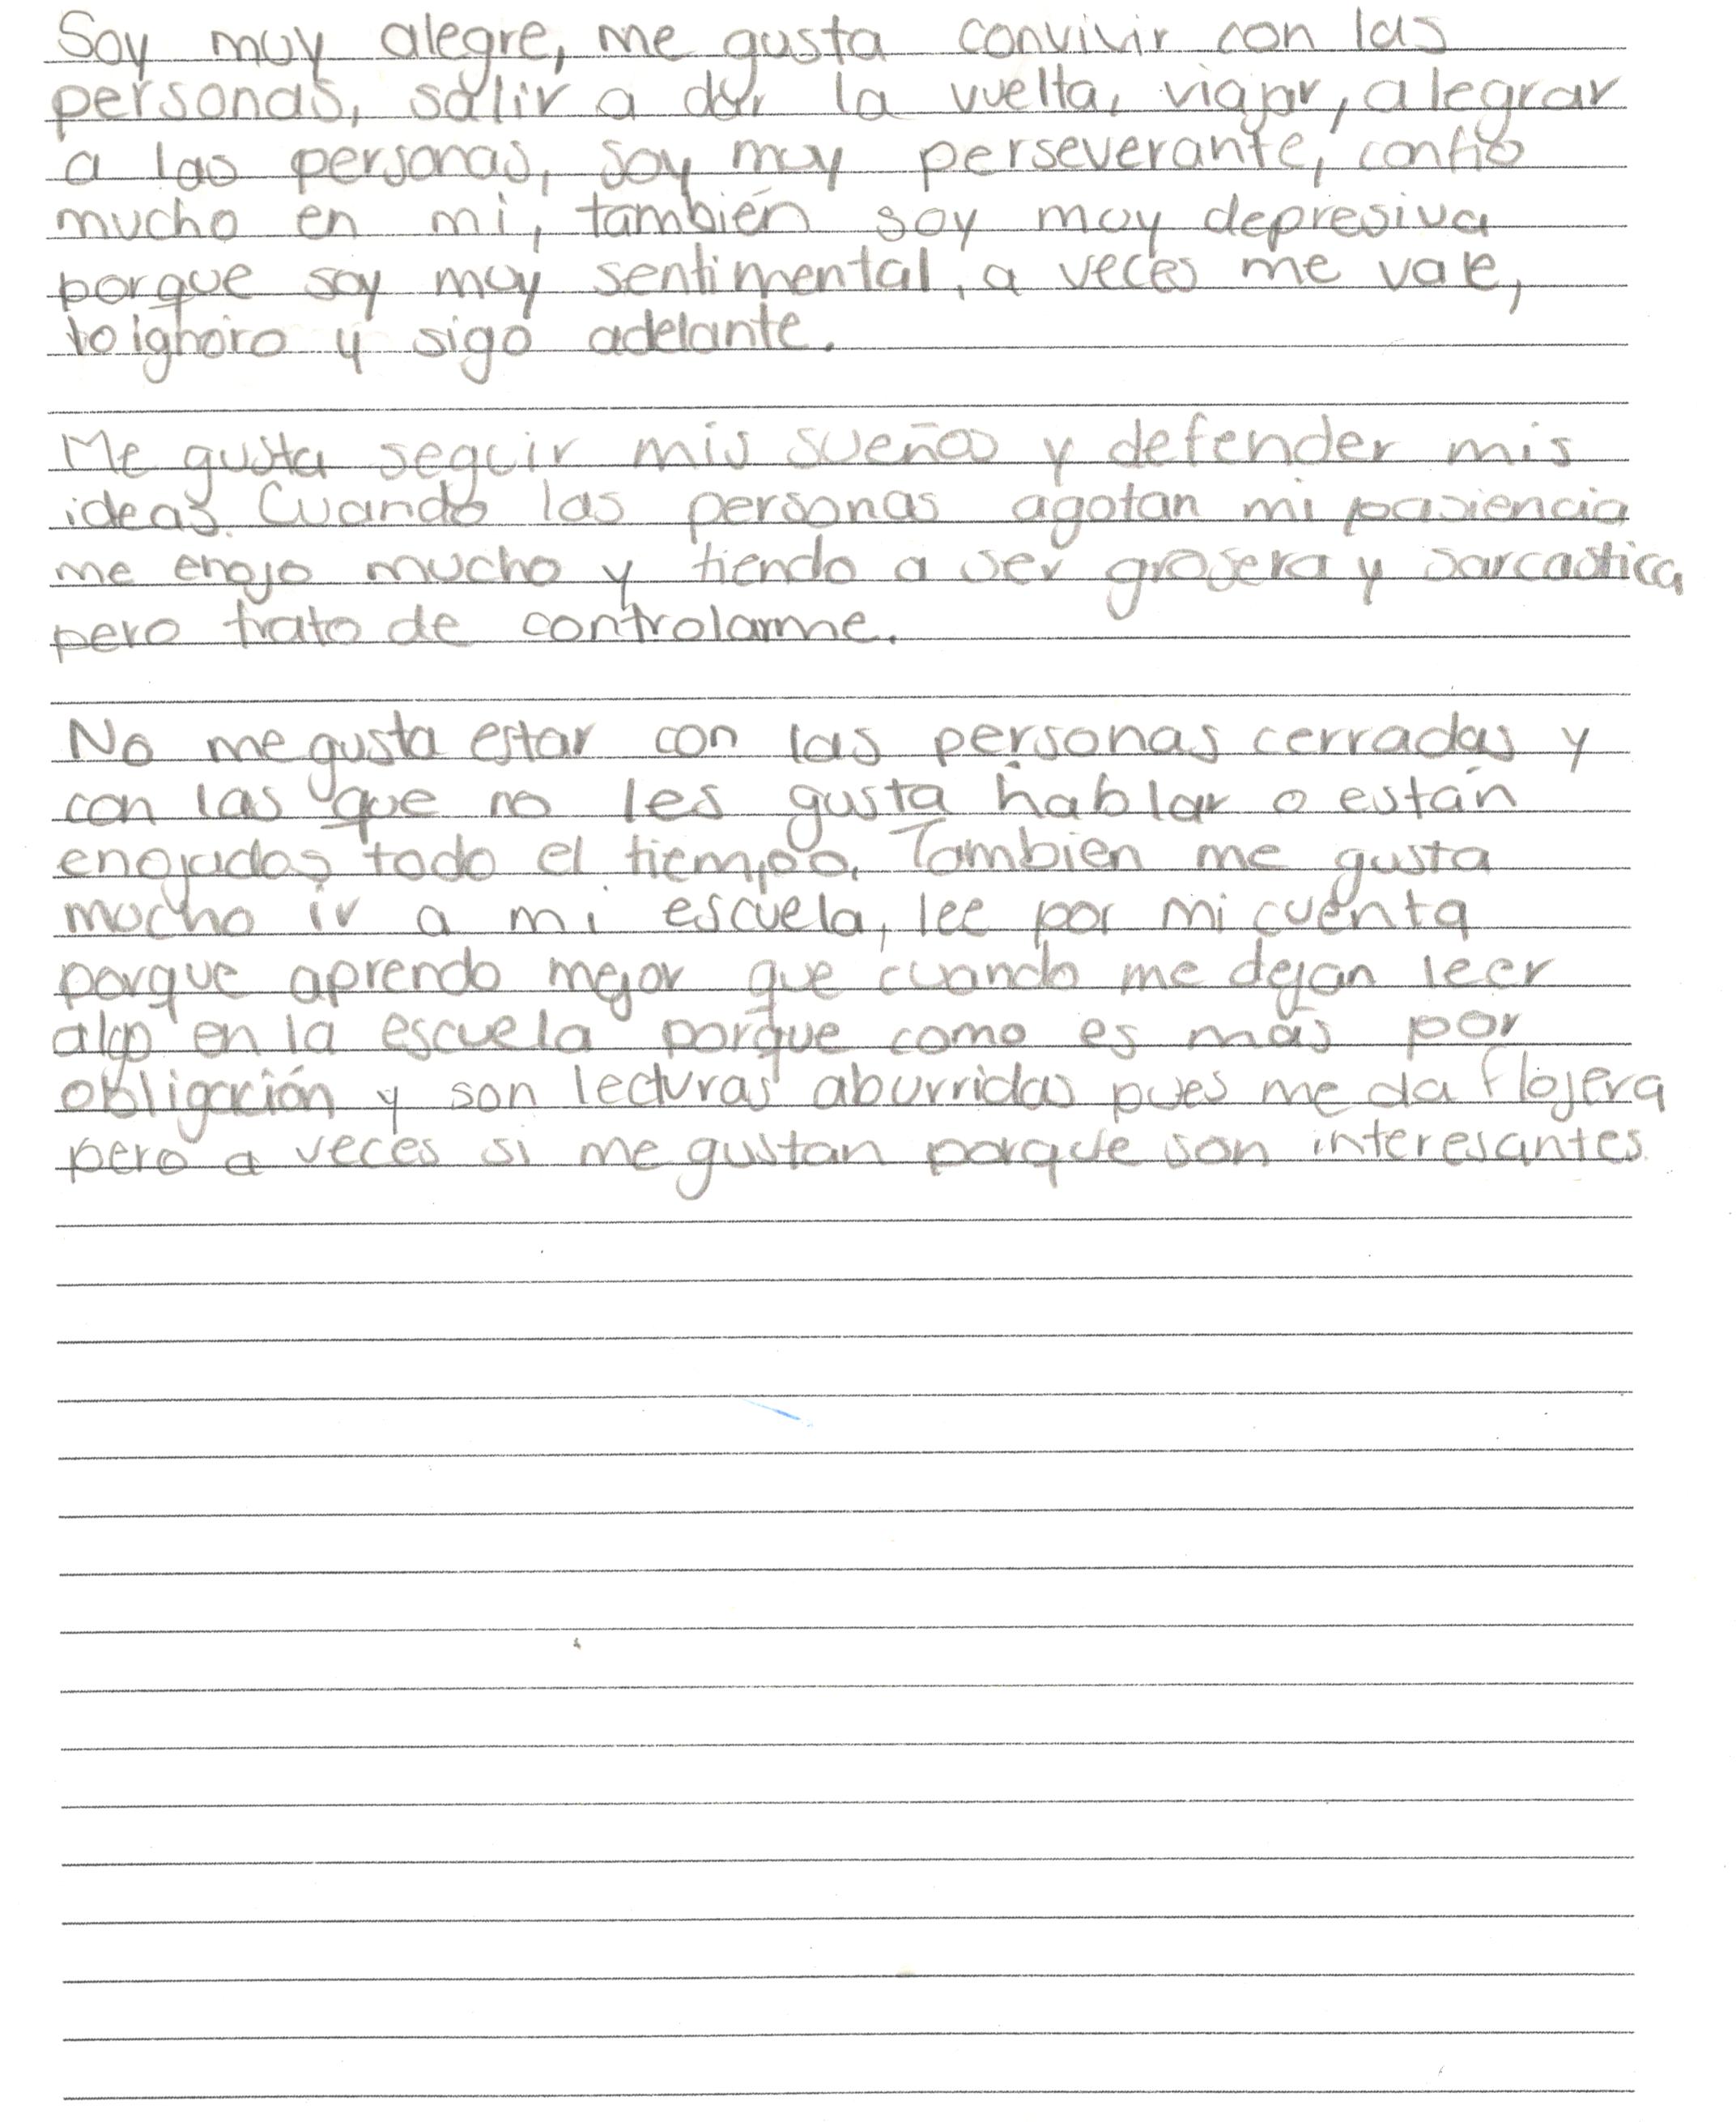 Soy muy alegre, me gusta convivir con las
personas, salir a dar la vuelta, viajar, alegrar
a las personas, soy muy perseverante, confio
mucho en mi, también soy muy depresiva
porque soy muy sentimental, a veces me vale,
lo ignoro y sigo adelante.
Me gusta seguir mis sueños y defender mis
ideas. Cuando las personas agotan mi pasiencia
me enojo mucho y tiendo a ser grosera y sarcastica
pero trato de controlarme.
No me gusta estar con las personas cerradas y
con las que no les gusta hablar o están
enojados todo el tiempo. Tambien me gusta
mucho ir a mi escuela, lee por mi cuenta
porque aprendo mejor que cuando me dejan leer
algo en la escuela porque como es mas por
obligación y son lecturas aburridas pues me da flojera
pero a veces si me gustan porque son interesantes.